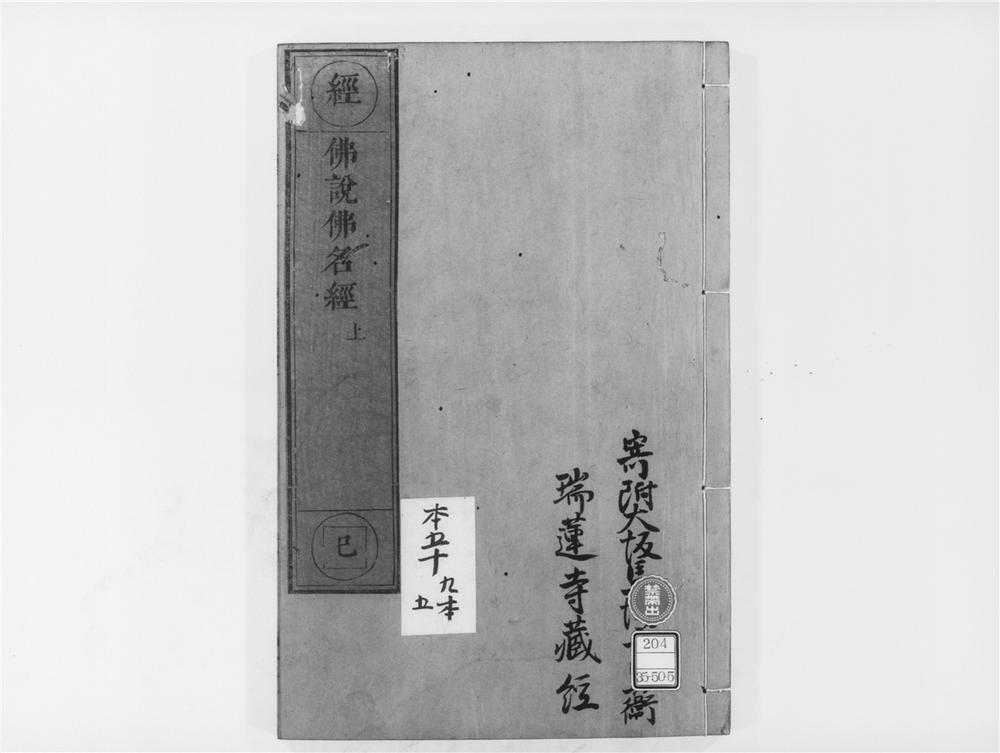 經
佛說佛名經
上
巳
本五十
九本
五
寄附大坂
衛
瑞蓮寺藏経
禁帶出
204
35-505